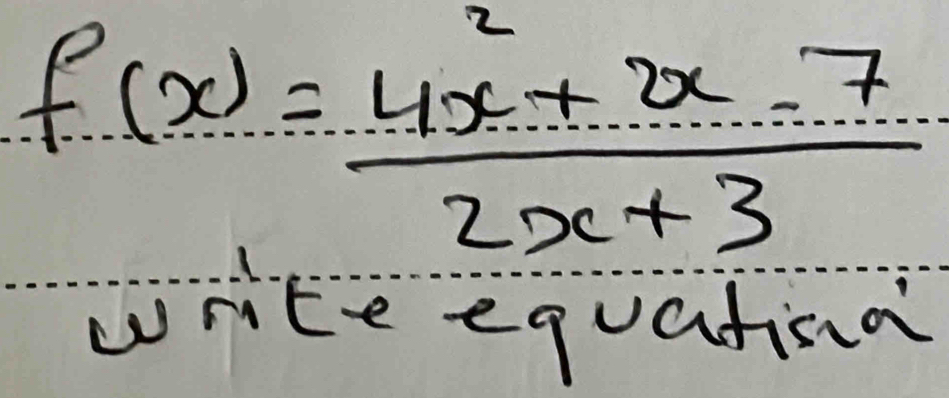 f(x) = 4x² + 2x - 7
2x + 3
write equation